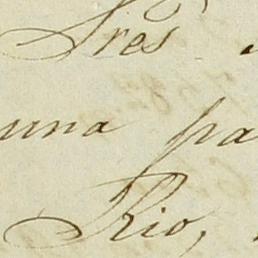 Sres
una pa
Rio,